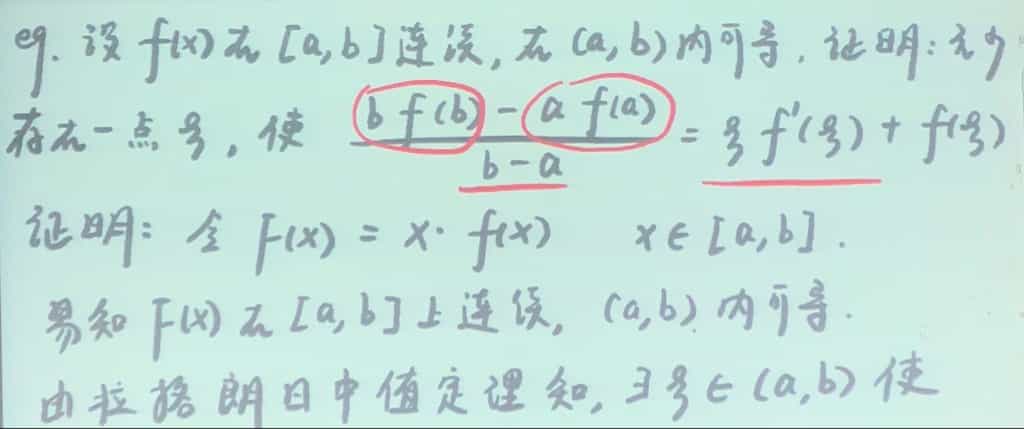 eg. 设 f(x) 在 [a, b] 连续, 在 (a, b) 内可导. 证明: 至少
存在一点 ξ, 使 \frac{b f(b) - a f(a)}{b - a} = ξ f'(ξ) + f(ξ)
证明: 令 F(x) = x · f(x) x ∈ [a, b].
易知 F(x) 在 [a, b] 上连续, (a, b) 内可导.
由拉格朗日中值定理知, ∃ξ ∈ (a, b) 使